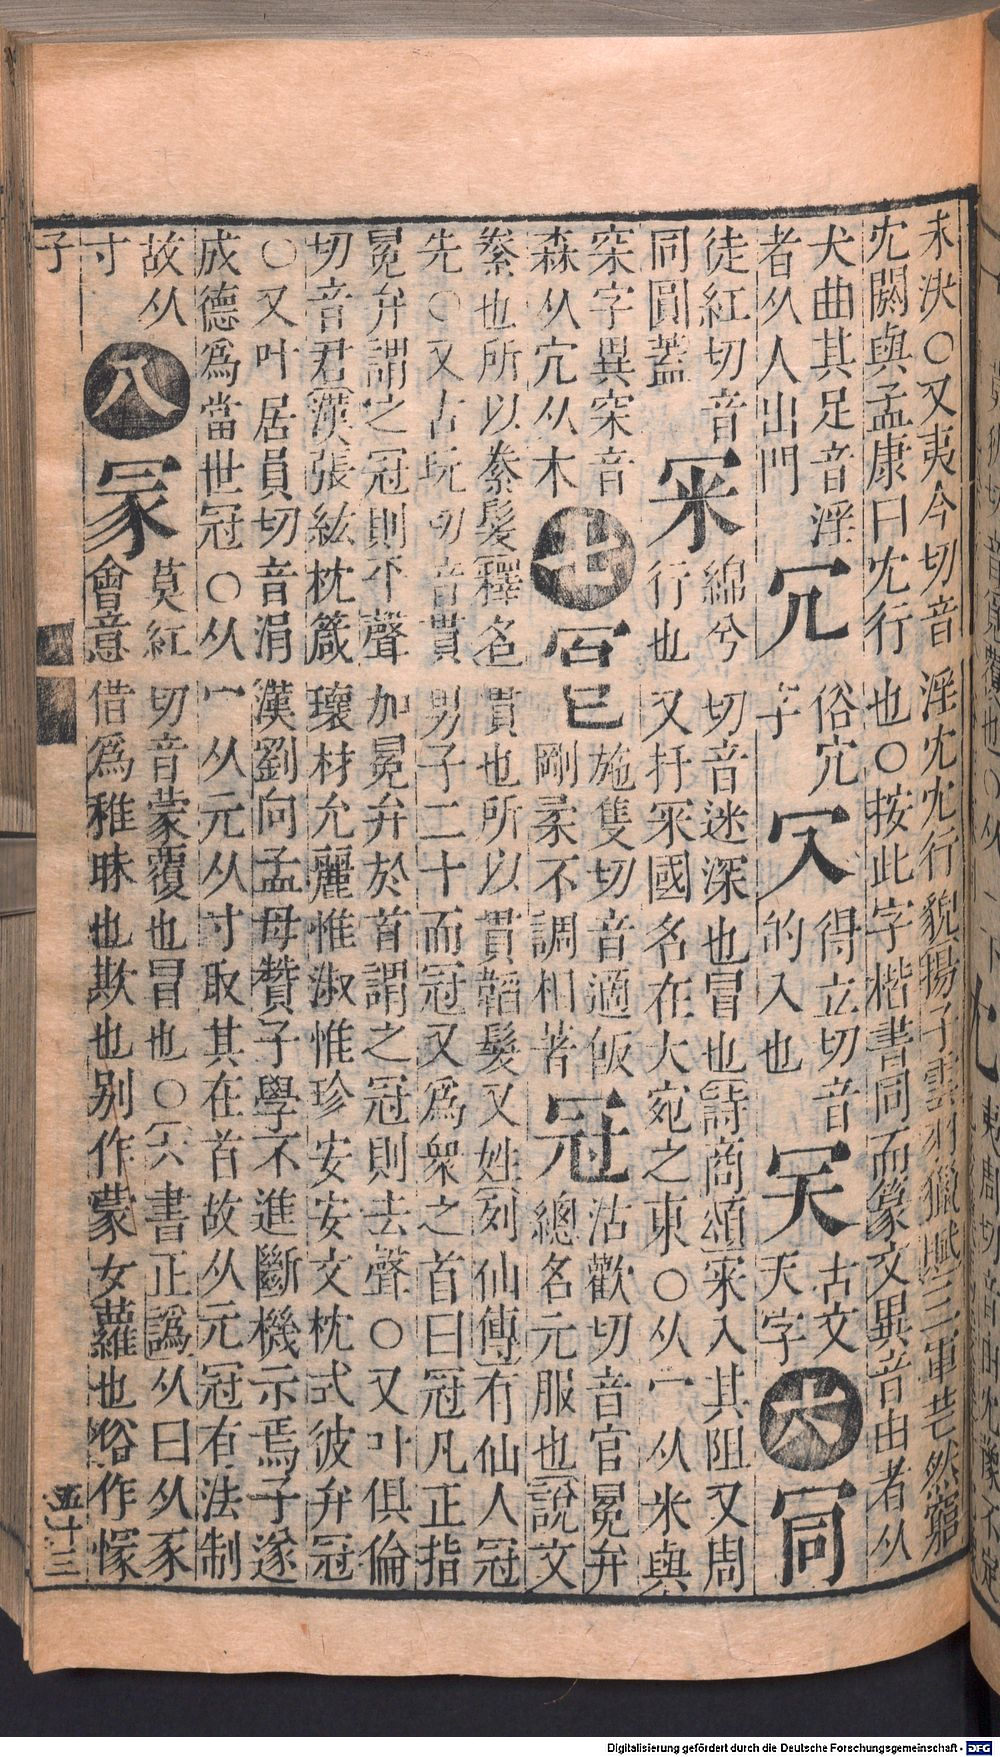 未決○又夷今切音淫冘冘行貌揚子雲羽獵賦三軍芒然窮
冘閼與孟康曰冘行也○按此字楷書同而篆文異音由者从
犬曲其足音淫
者从人出門
冗
俗宂
字
得立切音
的入也
古文
天字
六
徒紅切音
同圓蓋
冞
綿兮切音迷深也冒也詩商頌冞入其阻又周
行也又扜冞國名在大宛之東○从冖从米與
穼字異穼音
森从穴从木
七
冟
施隻切音適飯
剛柔不調相著
冠
沽歡切音官冕弁
總名元服也說文
絭也所以絭髮釋名貫也所以貫韜髮又姓列仙傳有仙人冠
先○又古玩切音貫男子二十而冠又爲衆之首曰冠凡正指
冕弁謂之冠則平聲加冕弁於首謂之冠則去聲○又叶俱倫
切音君漢張紘枕箴瓌材允麗惟淑惟珍安安文枕式彼弁冠
○又叶居員切音涓漢劉向孟母贊子學不進斷機示焉子遂
成德爲當世冠○从冖从元从寸取其在首故从元冠有法制
故从
寸
八
冡
莫紅切音蒙覆也冒也○六書正譌从冃从豕
會意借爲稚昧也欺也別作蒙女蘿也俗作懞
子
五十三
Digitalisierung gefördert durch die Deutsche Forschungsgemeinschaft - DFG